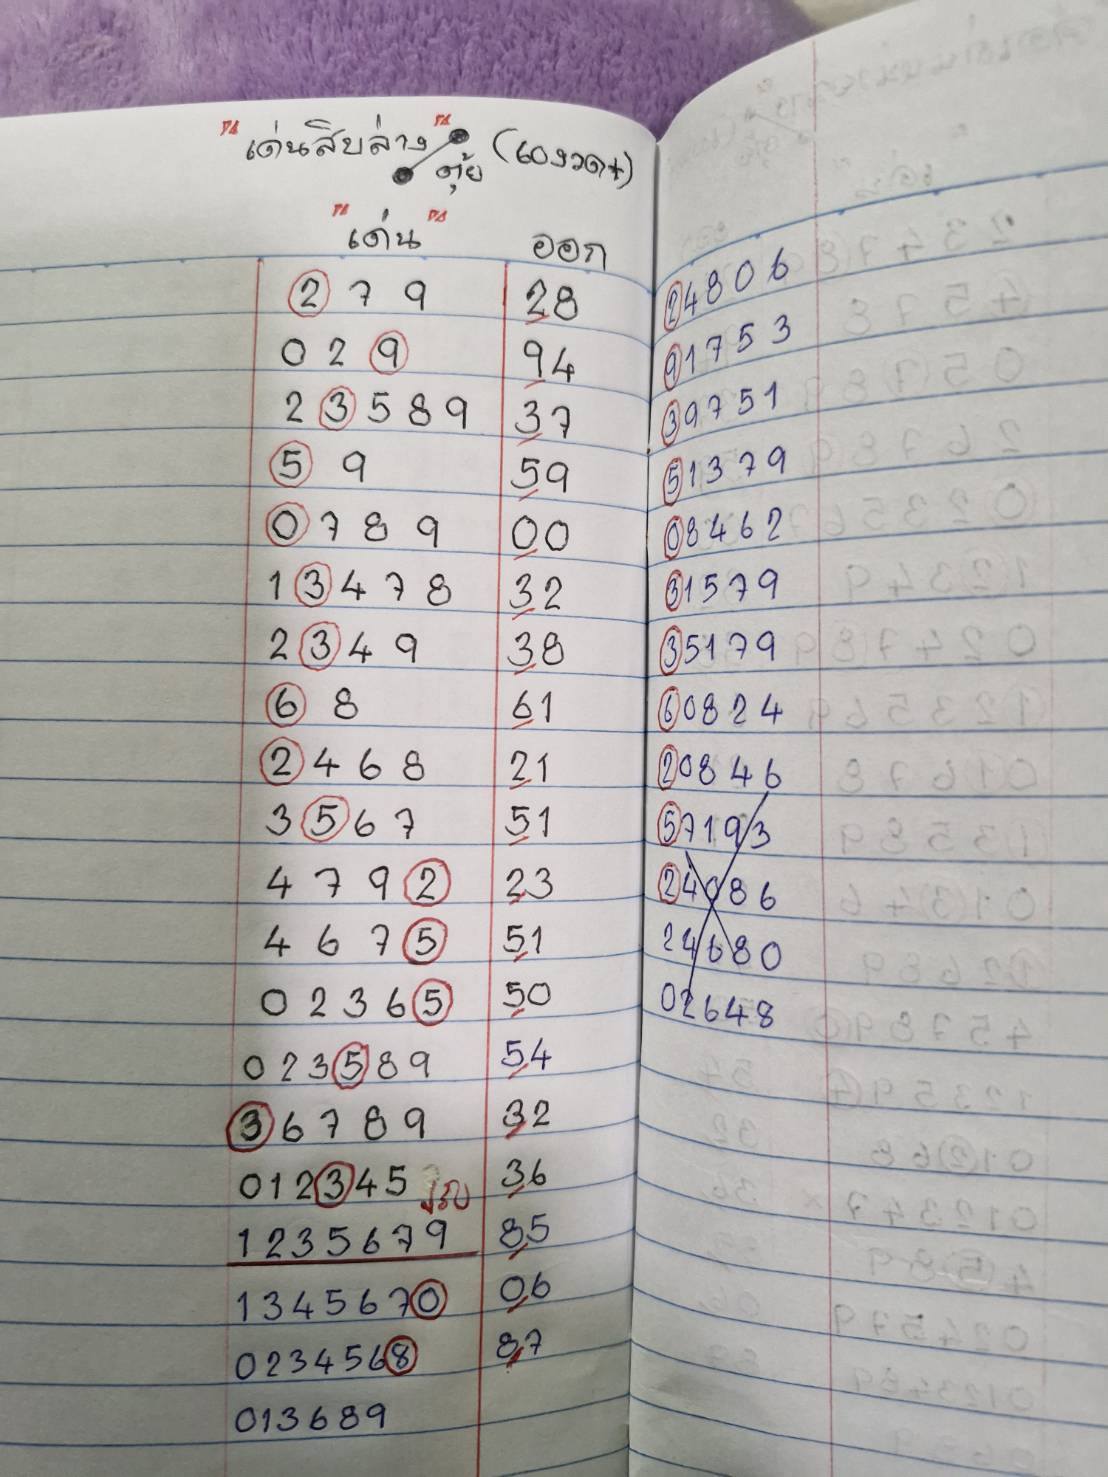 "เด่นสิบล่าง" (60งวด+)
ตุ้ย
"เด่น" ออก
2 7 9 28 24806
0 2 9 94 91753
2 3 5 8 9 37 39751
5 9 59 51379
0 7 8 9 00 08462
1 3 4 7 8 32 31579
2 3 4 9 38 35179
6 8 61 60824
2 4 6 8 21 20846
3 5 6 7 51 57193
4 7 9 2 23 24086
4 6 7 5 51 24680
0 2 3 6 5 50 02648
0 2 3 5 8 9 54
3 6 7 8 9 32
0 1 2 3 4 5 36
1 2 3 5 6 7 9 85
1 3 4 5 6 7 0 06
0 2 3 4 5 6 8 87
0 1 3 6 8 9